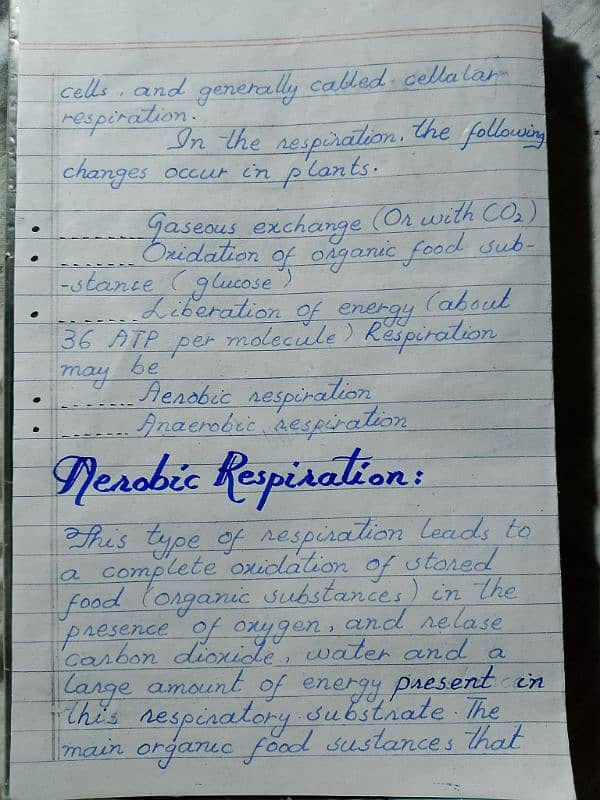 cells, and generally cabled cellalar
respiration.
In the respiration, the following
changes occur in plants.
• ........ Gaseous exchange (Or with CO₂)
• ........ Oxidation of organic food sub-
-stance (glucose)
• ........ Liberation of energy (about
36 ATP per molecule) Respiration
may be
• ........ Aerobic respiration
• ........ Anaerobic respiration
Aerobic Respiration:
This type of respiration leads to
a complete oxidation of stored
food (organic substances) in the
presence of oxygen, and relase
carbon dioxide, water and a
large amount of energy present in
this respiratory substrate. The
main organic food sustances that